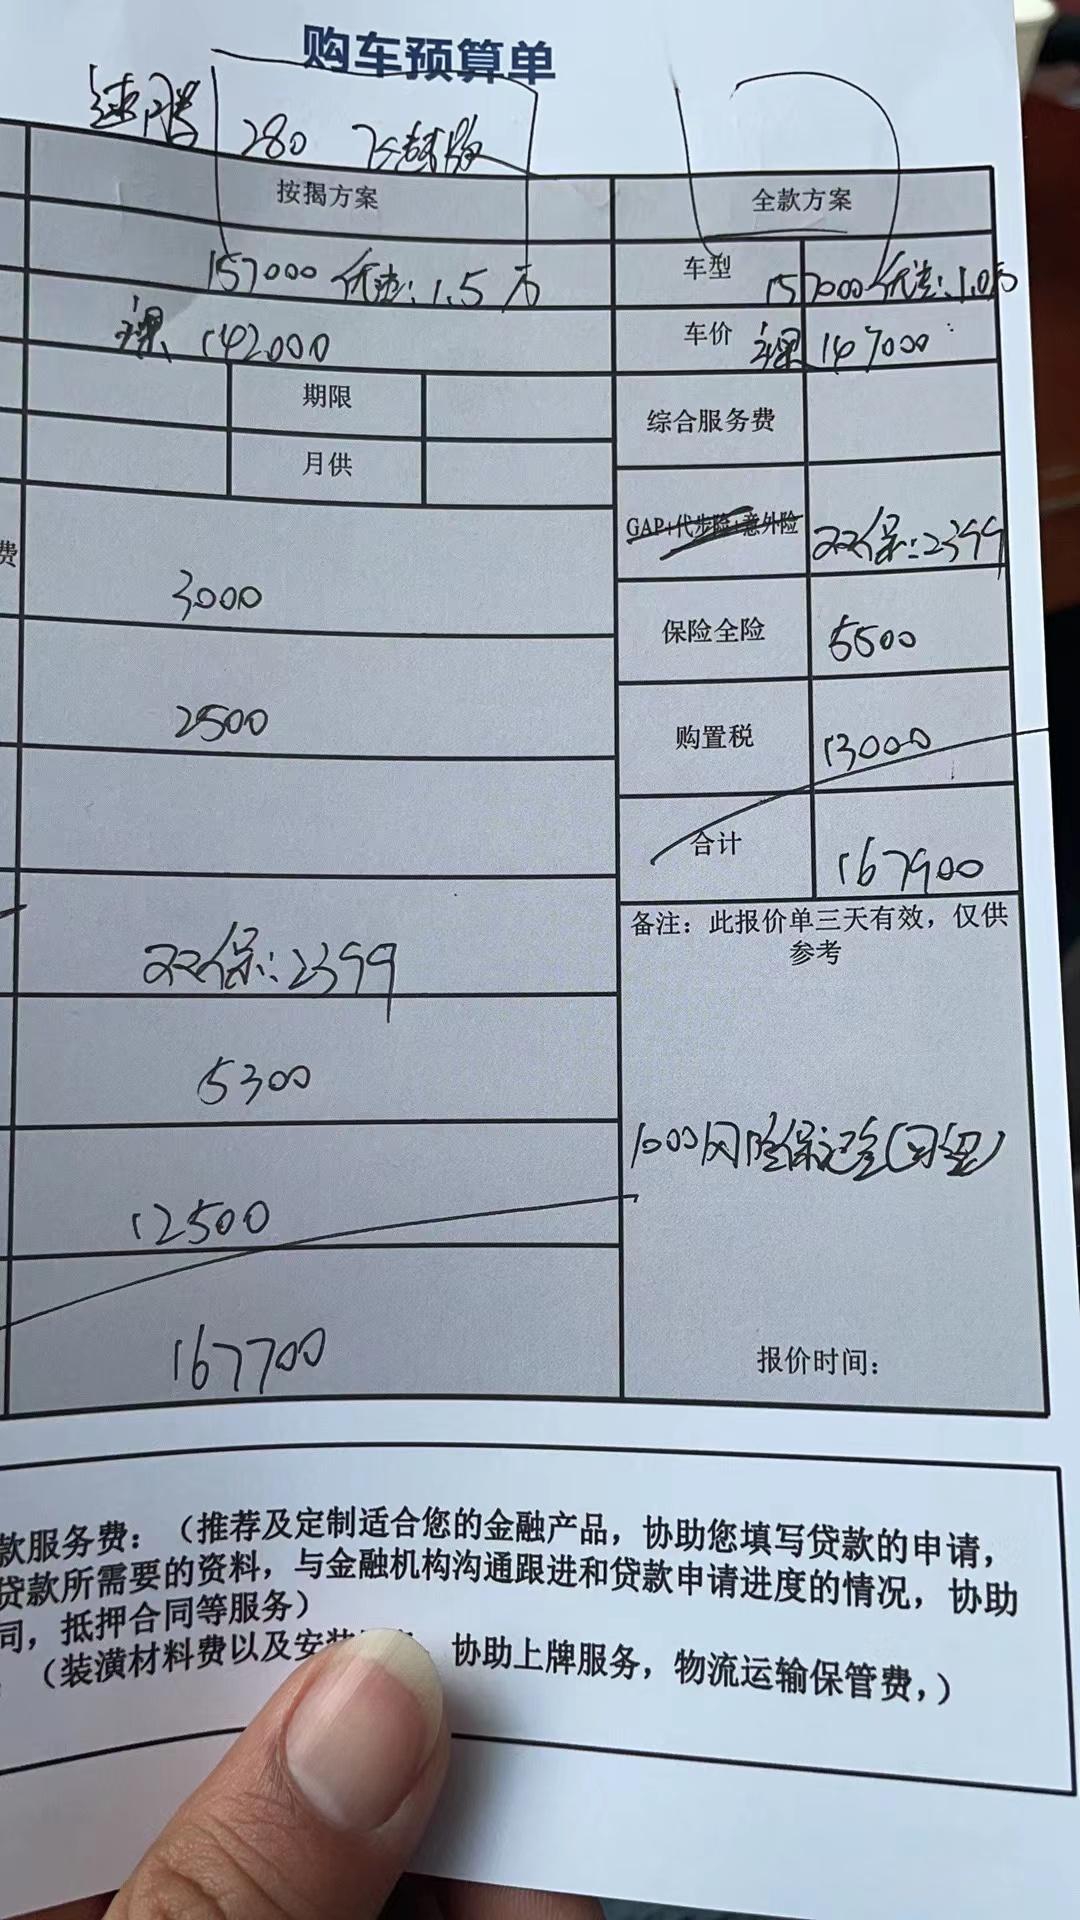 购车预算单
速腾 280 飞越版
按揭方案
157000 优惠:1.5万
裸 142000
期限
月供
费
3000
2500
双保:2399
5300
12500
167700
全款方案
车型 157000优惠:1.0万
车价 裸 147000
综合服务费
GAP+代步险+意外险 双保:2399
保险全险 5500
购置税 13000
合计 167900
备注:此报价单三天有效,仅供
参考
报价时间:
款服务费:(推荐及定制适合您的金融产品,协助您填写贷款的申请,
贷款所需要的资料,与金融机构沟通跟进和贷款申请进度的情况,协助
同,抵押合同等服务)
(装潢材料费以及安装 协助上牌服务,物流运输保管费,)